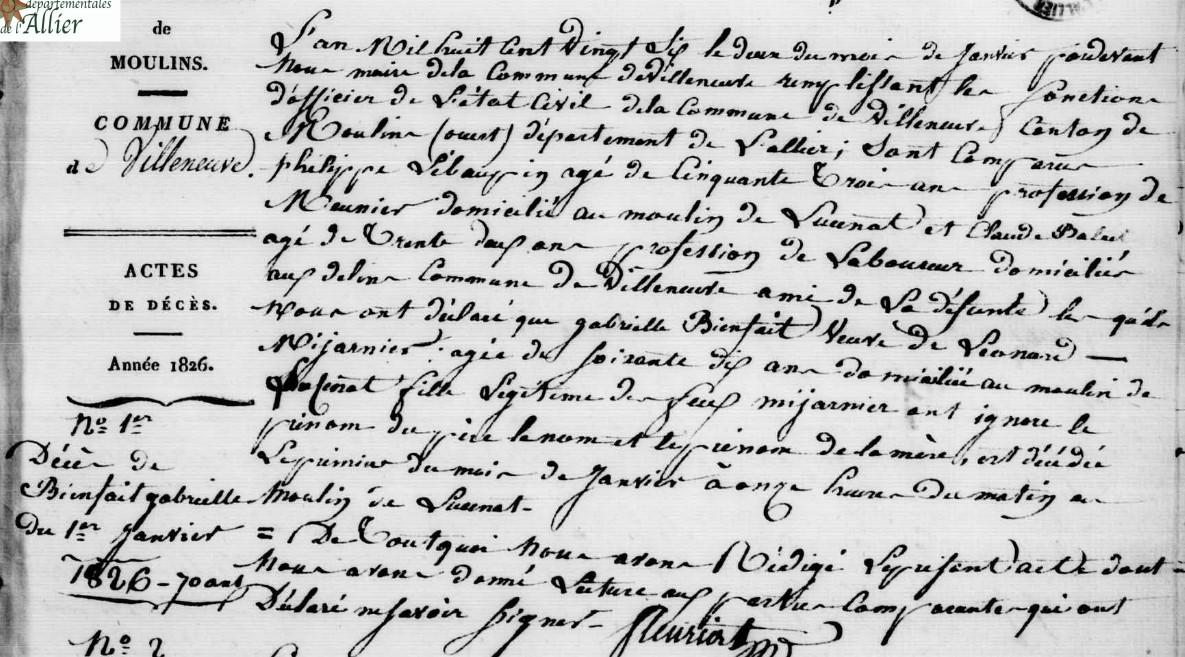 départementales
de l'Allier
de
MOULINS.
COMMUNE
de Villeneuve.
ACTES
DE DÉCÈS.
Année 1826.
No 1er
Décès de
Bienfait gabrielle
du 1er Janvier
1826 - 70 ans
No 2
L'an Mil huit Cent Vingt Six le deux du mois de Janvier pardevant
Nous maire de la Commune de Villeneuve remplissant les fonctions
d'officier de L'état Civil de la Commune de Villeneuve Canton de
Moulins (ouest) département de L'allier; Sont Comparus
philippe Lébaupin agé de Cinquante Trois ans profession de
Meunier domicilié au moulin de et Claude
agé de Trente deux ans profession de Laboureur domiciliés
aux Commune de Villeneuve amis de La défunte les quels
Nous ont déclaré que gabrielle Bienfait Veuve de Leonard
Mijarnier agée de soixante dix ans domiciliée au moulin de
fille Légitime des feux mijarnier ont ignoré le
prénom du père le nom et le prénom de la mère, est décédée
Le premier du mois de Janvier à onze heures du matin au
Moulin de
= De Tout quoi Nous avons Rédigé Le présent acte dont
Nous avons donné Lecture aux parties Comparantes qui ont
Déclaré ne savoir Signer - fleuriot